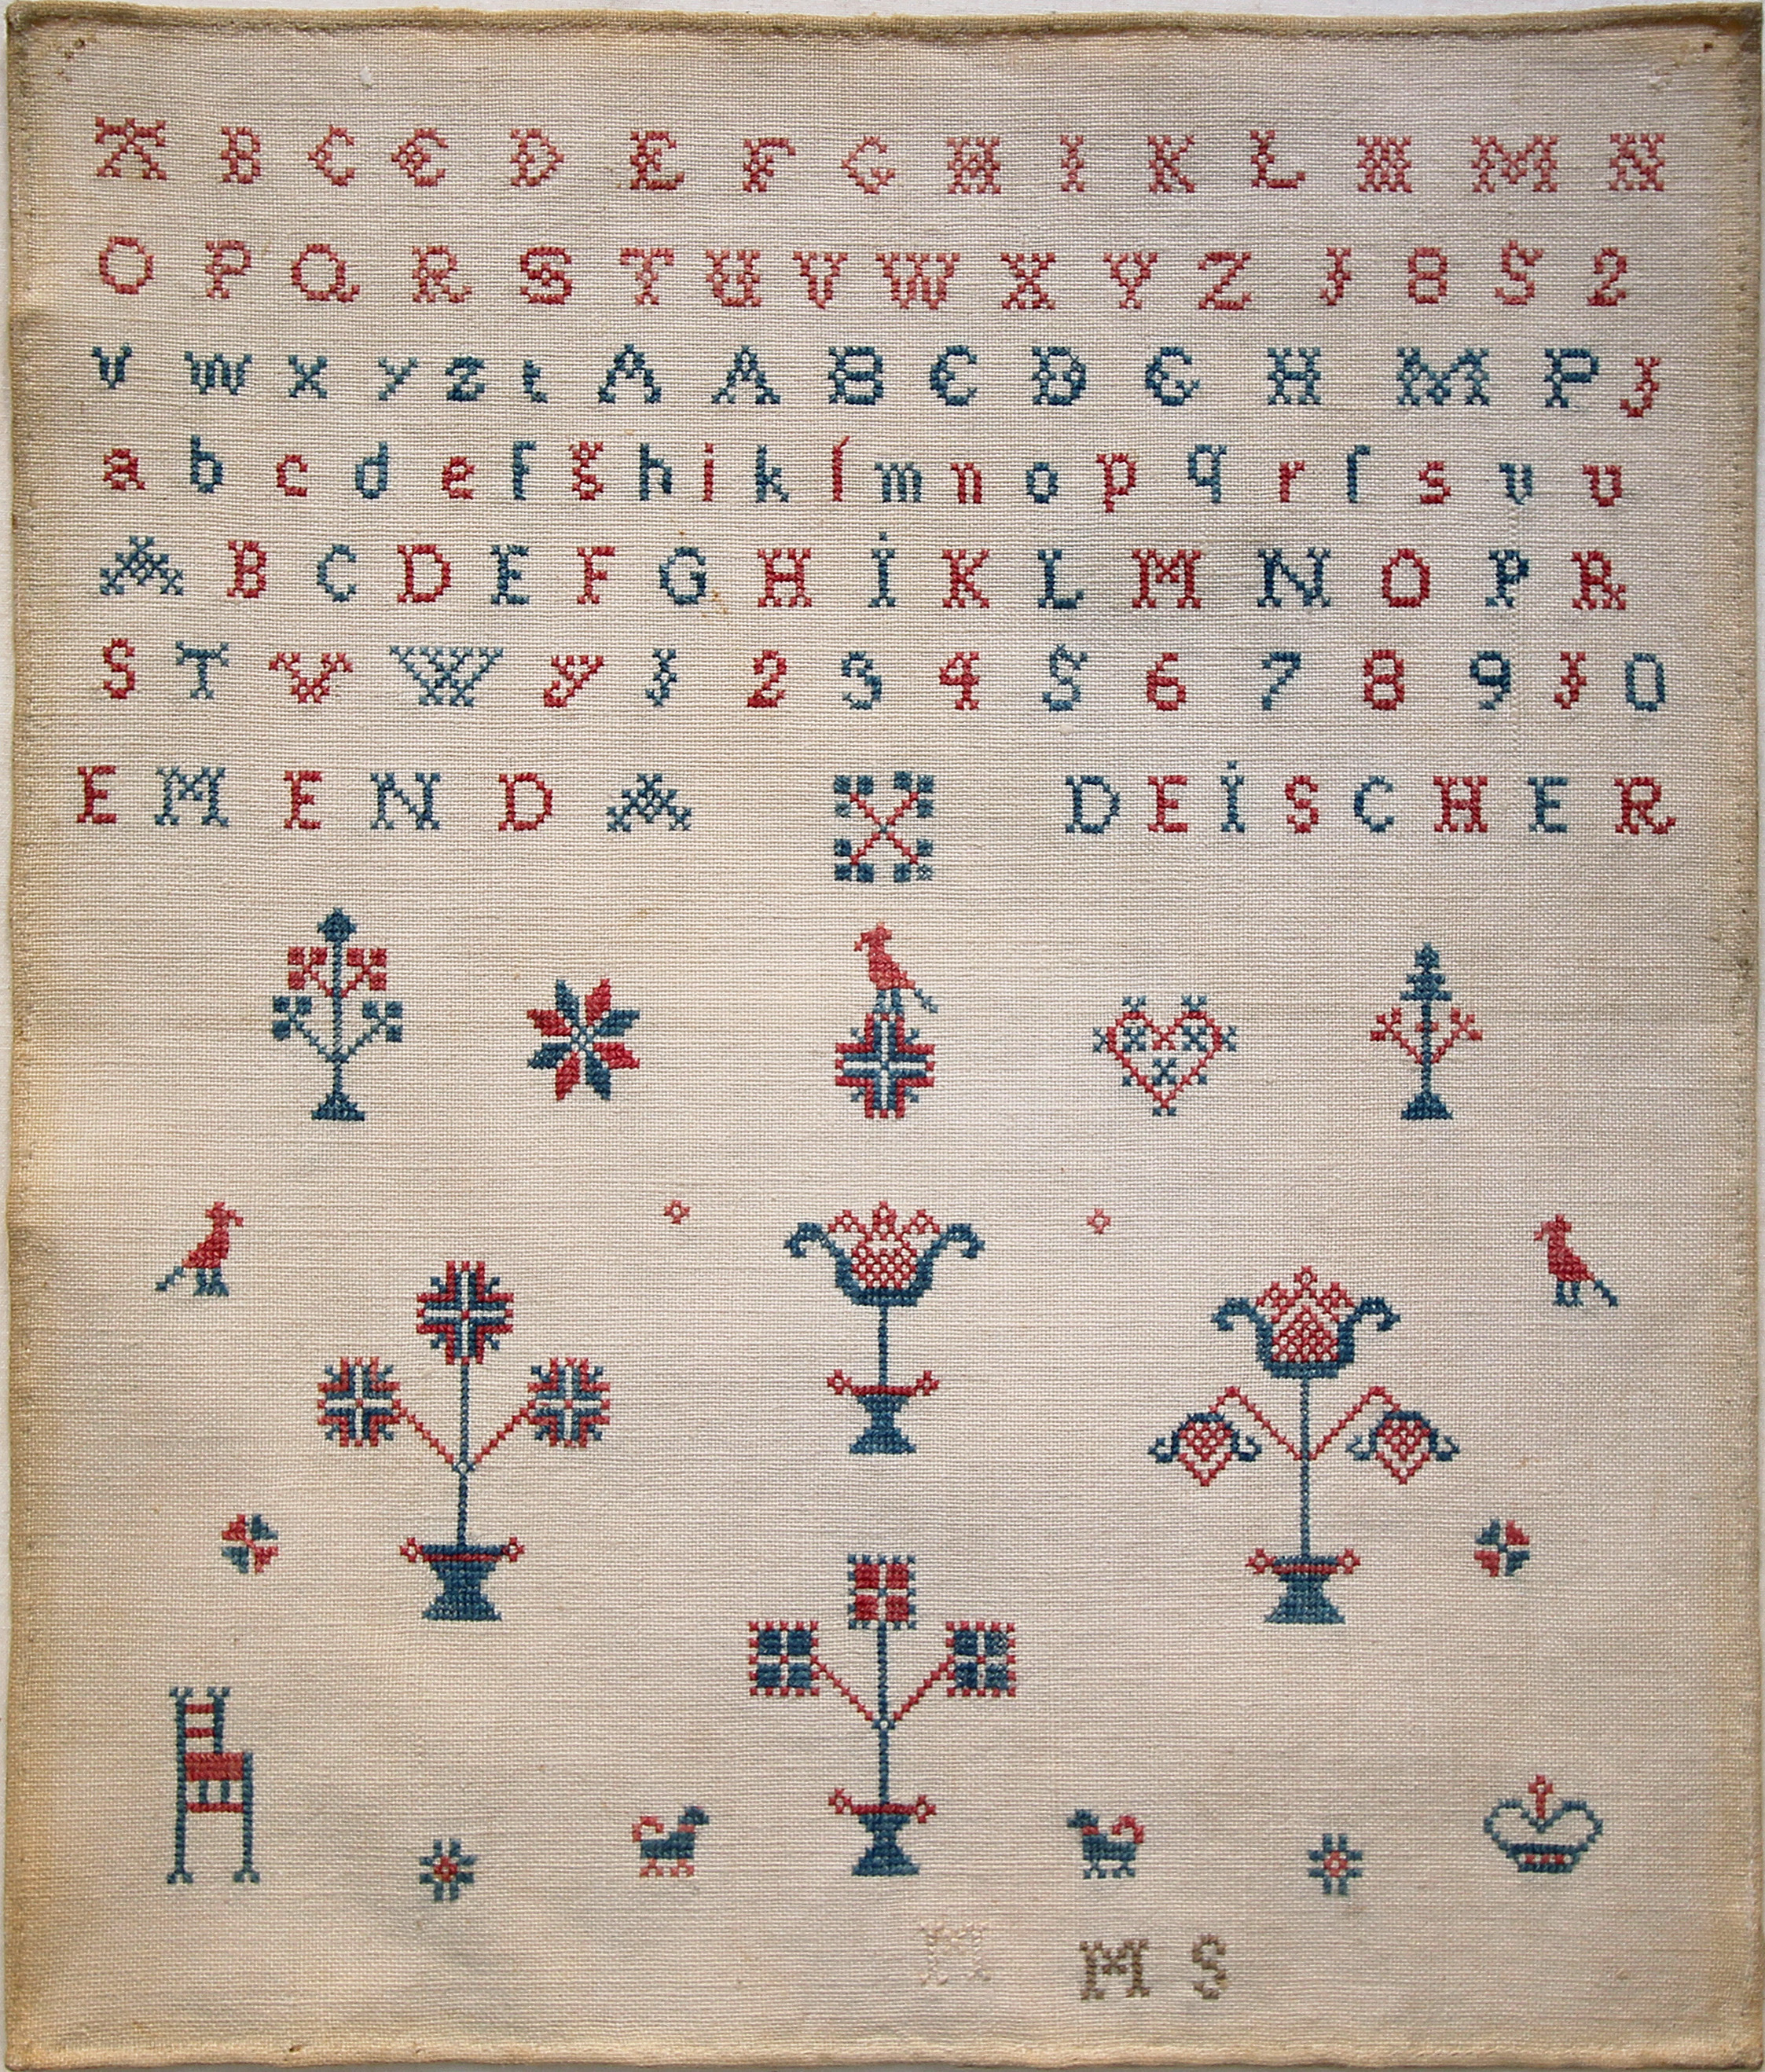 A B C E D E F G H I K L M M N
O P Q R S T U V W X Y Z 1 8 5 2
v w x y z t A A B C D E H M P J
a b c d e f g h i k l m n o p q r ſ s v u
A B C D E F G H İ K L M N O P R
S T V W Y 1 2 3 4 5 6 7 8 9 1 0
EMENDA DEİSCHER
M M S